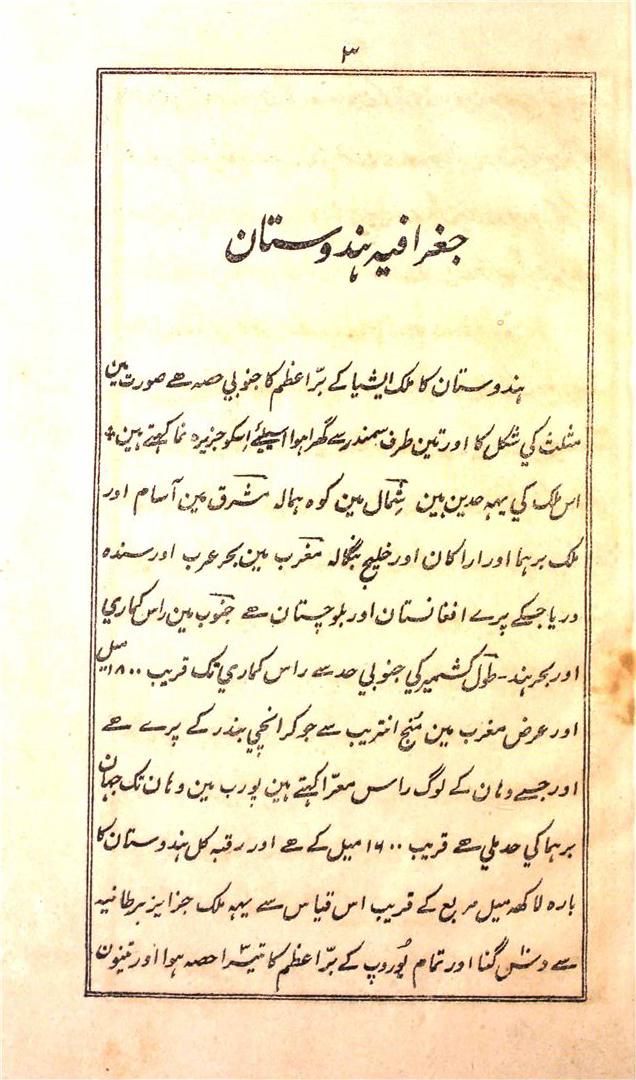 ۳
جغرافیہ ہندوستان
ہندوستان کا ملک ایشیا کے برّ اعظم کا جنوبي حصہ ہے صورت مین
مثلث کي شکل کا اور تین طرف سمندر سے گھرا ہوا اسلیئے اسکو جزیرہ نما کہتے ہین +
اس ملک کي یہہ حدین ہین شِمال مین کوہ ہمالہ مشرق مین آسام اور
ملک برہما اور اراکان اور خلیج بنگالہ مغرب مین بحر عرب اور سندہ
دریا جسکے پرے افغانستان اور بلوچستان ہے جنوب مین راس کماري
اور بحر ہند - طول کشمیر کي جنوبي حد سے راس کماري تک قریب ۱۸۰۰ میل
اور عرض مغرب مین مُنج انتریب سے جو کرانچي بندر کے پرے ہے
اور جسے وہان کے لوگ راس معرّا کہتے ہین پورب مین وہان تک جہان
برہما کي حد ملي ہے قریب ۱۶۰۰ میل کے ہے اور رقبہ کل ہندوستان کا
بارہ لاکھہ میل مربع کے قریب اس قیاس سے یہہ ملک جزایر برطانیہ
سے دس گنا اور تمام یُوروپ کے برّ اعظم کا تیسرا حصہ ہوا اور تینون